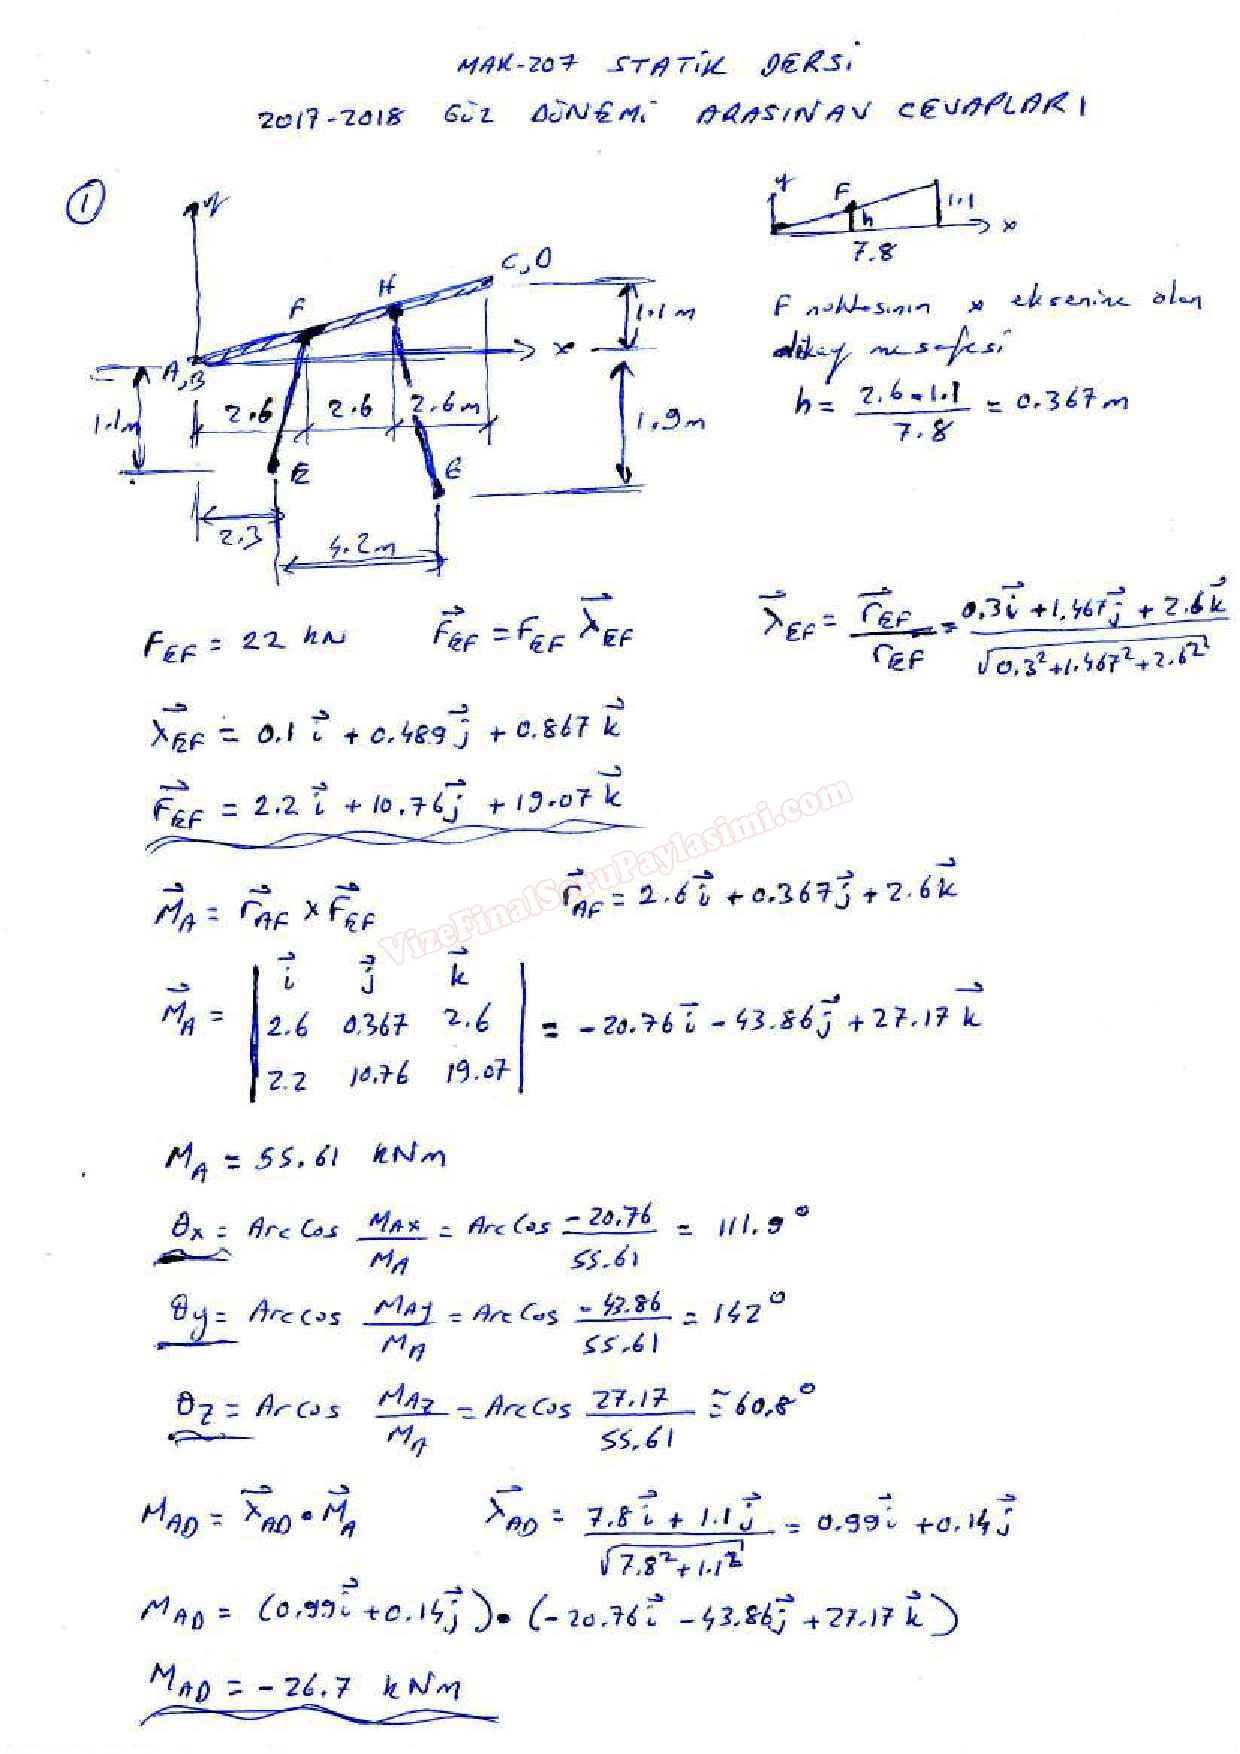 MAK-207 STATİK DERSİ
2017-2018 GÜZ DÖNEMİ ARASINAV CEVAPLARI
1
y
y F 1.1
h x
7.8
C,D
H
F
1.1m
x
A,B
F noktasının x eksenine olan
dikey mesafesi
h = 2.6*1.1 / 7.8 = 0.367m
1.1m
2.6 2.6 2.6m
1.9m
E G
2.3
4.2m
F_EF = 22 kN F⃗_EF = F_EF λ⃗_EF λ⃗_EF = r⃗_EF / r_EF = 0.3i⃗ + 1.467j⃗ + 2.6k⃗ / √0.3²+1.467²+2.6²
λ⃗_EF = 0.1 i⃗ + 0.489 j⃗ + 0.867 k⃗
F⃗_EF = 2.2 i⃗ + 10.76j⃗ + 19.07 k⃗
VizeFinalSoruPaylasimi.com
M⃗_A = r⃗_AF x F⃗_EF r⃗_AF = 2.6i⃗ + 0.367j⃗ + 2.6k⃗
M⃗_A = | i⃗ j⃗ k⃗
2.6 0.367 2.6
2.2 10.76 19.07 | = -20.76i⃗ - 43.86j⃗ + 27.17 k⃗
M_A = 55.61 kNm
θx = ArcCos M_Ax / M_A = ArcCos -20.76 / 55.61 = 111.9°
θy = Arccos M_Ay / M_A = ArcCos -43.86 / 55.61 = 142°
θz = Arcos M_Az / M_A = ArcCos 27.17 / 55.61 ≅ 60.8°
M_AD = λ⃗_AD • M⃗_A λ⃗_AD = 7.8i⃗ + 1.1j⃗ / √7.8²+1.1² = 0.99i⃗ + 0.14j⃗
M_AD = (0.99i⃗ + 0.14j⃗) • (-20.76i⃗ - 43.86j⃗ + 27.17 k⃗)
M_AD = -26.7 kNm